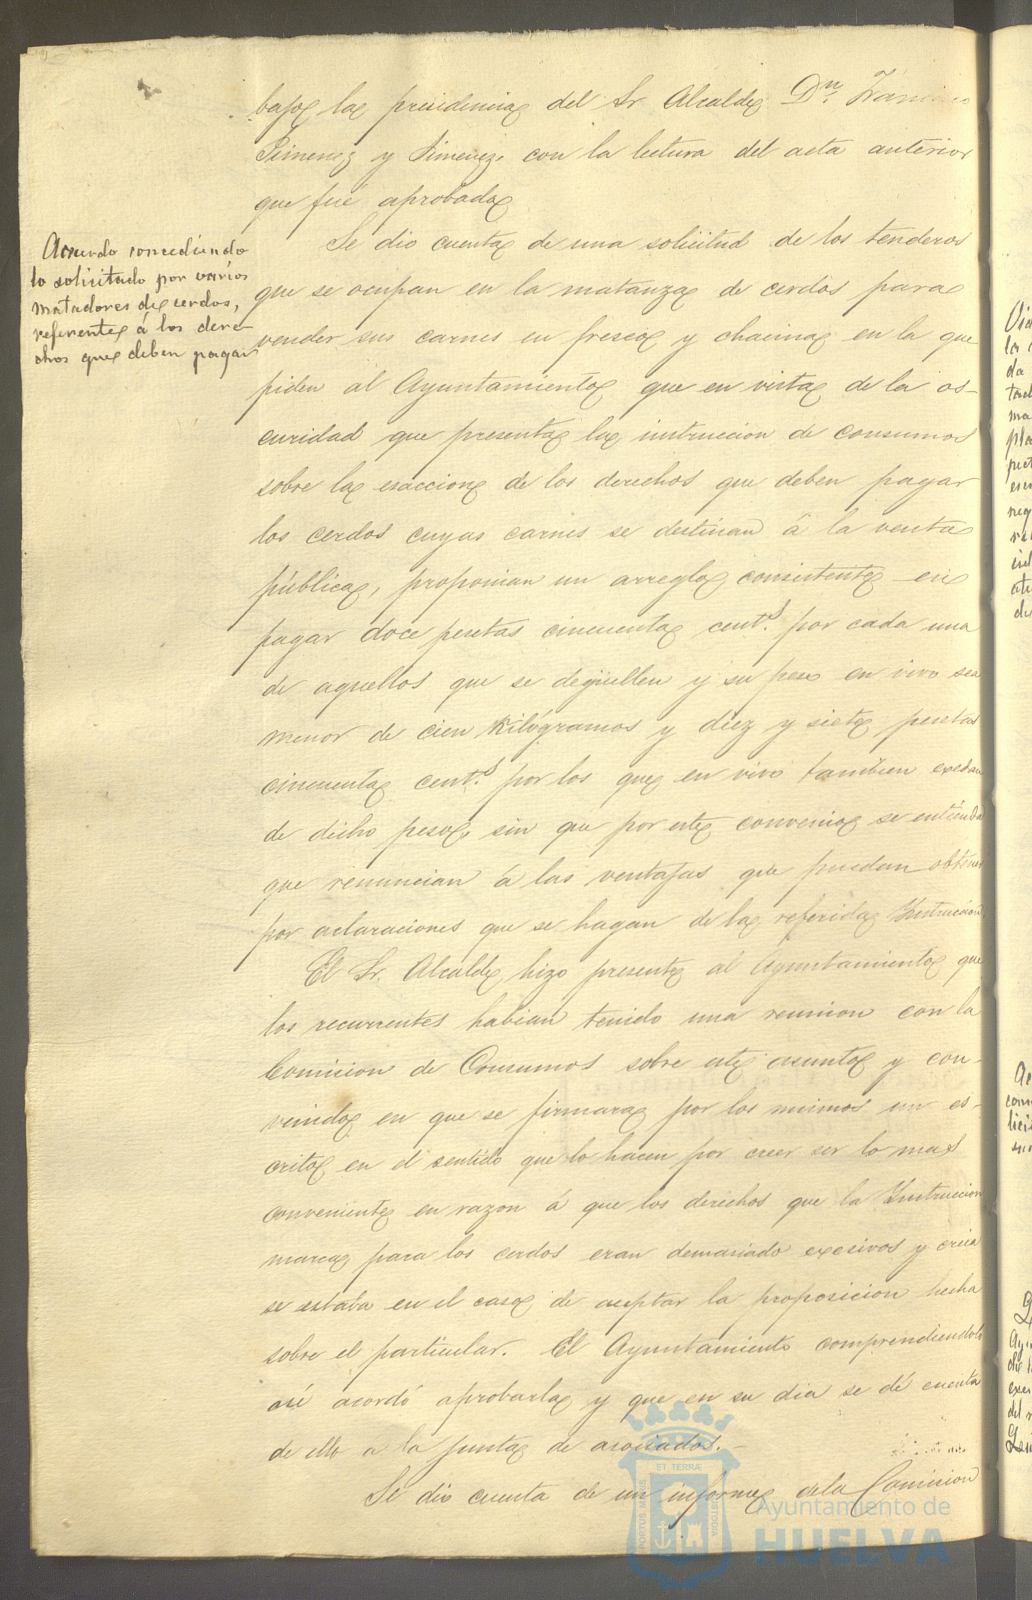 bajo la presidencia del Sr Alcalde Dn. Francisco
Jimenez y Jimenez, con la lectura del acta anterior
que fué aprobada
Acuerdo concediendo
lo solicitado por varios
matadores de cerdos,
referente á los dere-
chos que deben pagar
Se dio cuenta de una solicitud de los tenderos
que se ocupan en la matanza de cerdos para
vender sus carnes en fresco y chacina en la que
piden al Ayuntamiento que en vista de la os-
curidad que presenta la instruccion de consumos
sobre la esaccion de los derechos que deben pagar
los cerdos cuyas carnes se destinan á la venta
pública, proponian un arreglo consistente en
pagar doce pesetas cincuenta cent.s por cada una
de aquellos que se degüellen y su peso en vivo sea
menor de cien kilógramos y diez y siete pesetas
cincuenta cent.s por los que en vivo tambien excedan
de dicho peso, sin que por este convenio se entienda
que renuncian á las ventajas que puedan obtener
por aclaraciones que se hagan de la referida Instruccion.
El Sr. Alcalde hizo presente al Ayuntamiento que
los recurrentes habian tenido una reunion con la
Comision de Consumos sobre este asunto y con-
venido en que se firmara por los mismos un es-
crito en el sentido que lo hacen por creer ser lo mas
conveniente en razon á que los derechos que la Instruccion
marca para los cerdos eran demasiado excesivos y creia
se estaba en el caso de aceptar la proposicion hecha
sobre el particular. El Ayuntamiento comprendiendolo
asi acordó aprobarla y que en su dia se dé cuenta
de ello a la junta de asociados.
Se dio cuenta de un informe de la Comision
PORTUS MARIS
ET TERRÆ
CUSTODIA
Ayuntamiento de
HUELVA